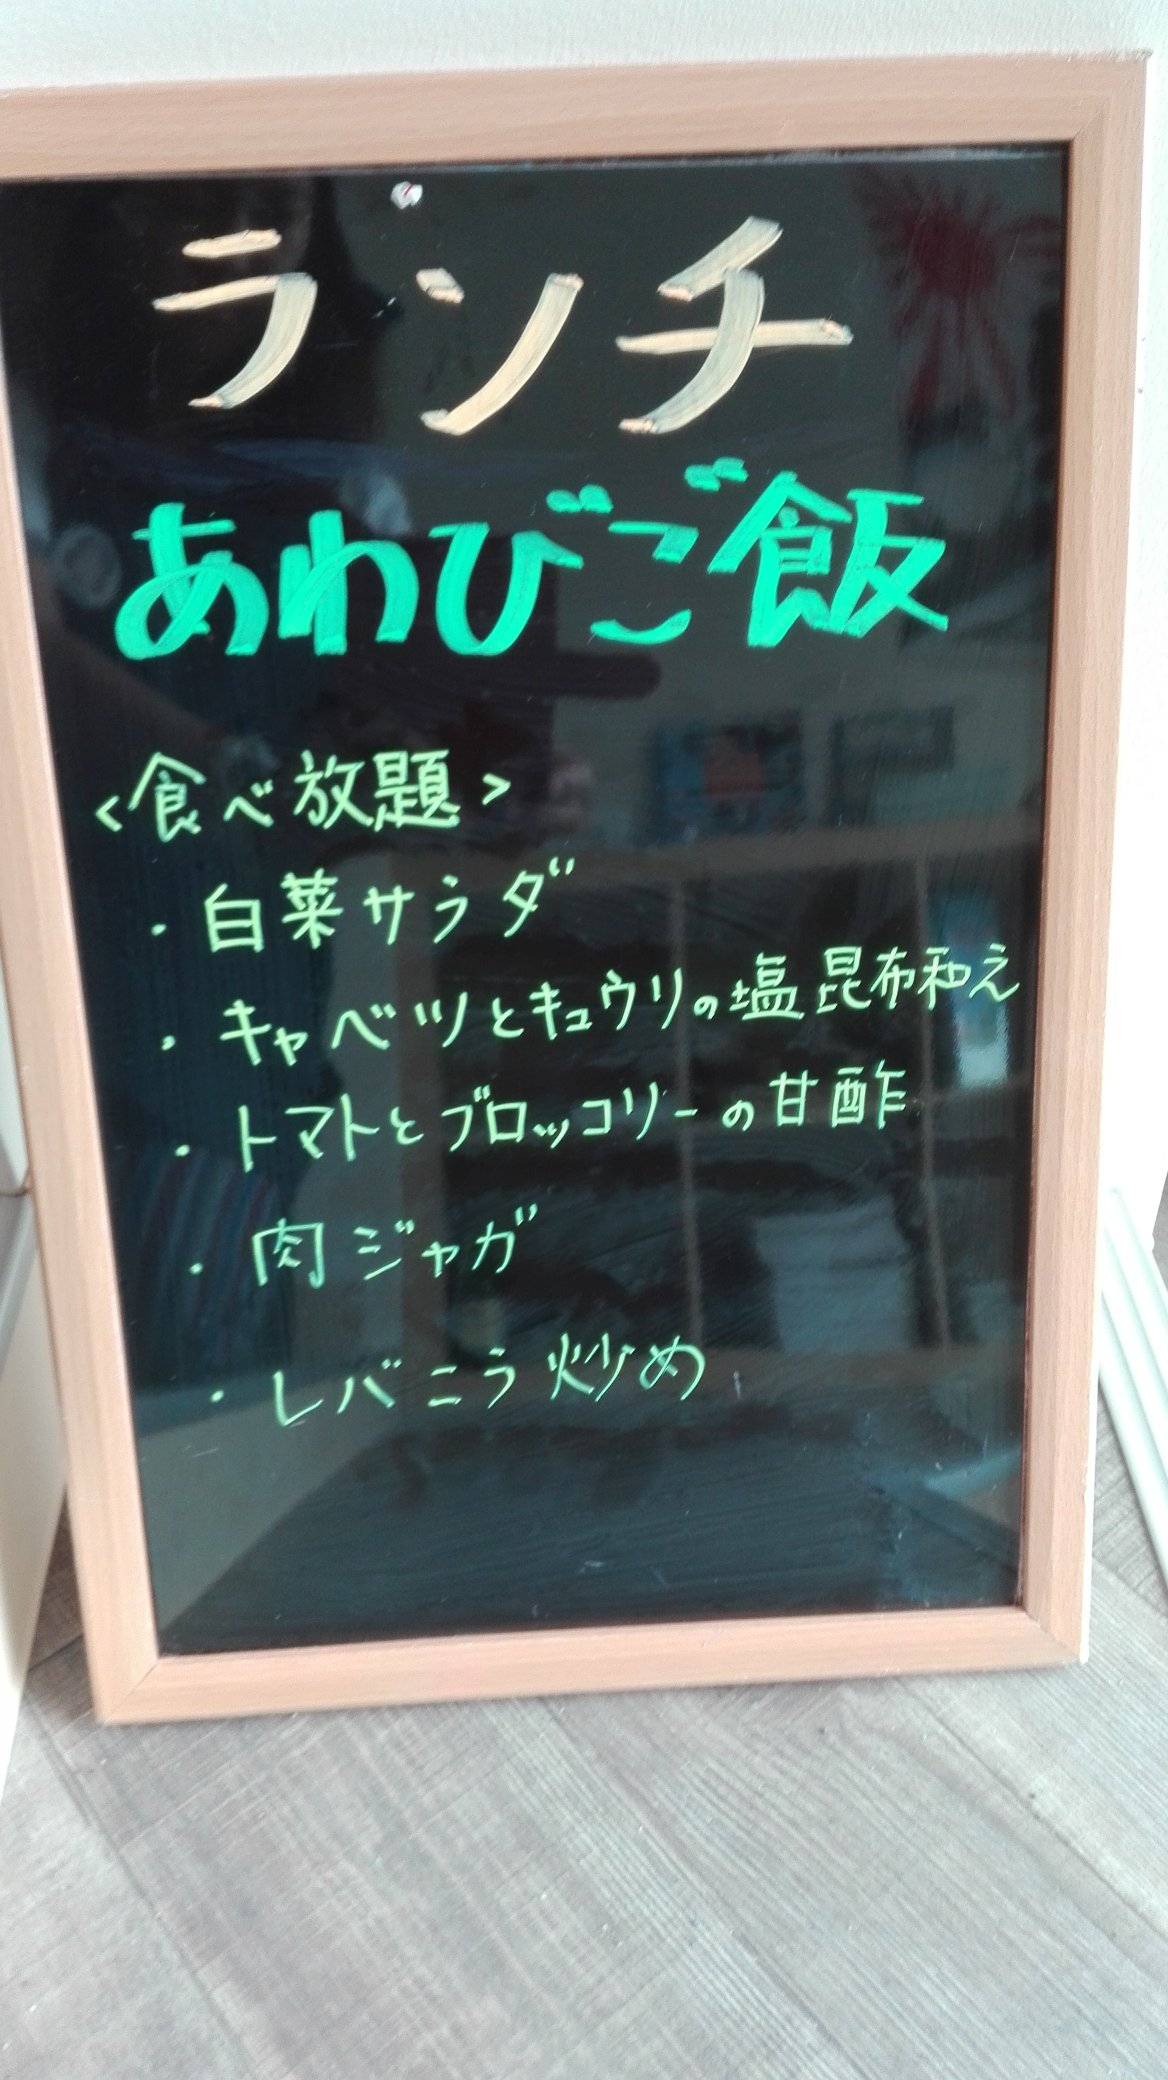 ランチ
あわびご飯
<食べ放題>
・白菜サラダ
・キャベツとキュウリの塩昆布和え
・トマトとブロッコリーの甘酢
・肉ジャガ
・レバニラ炒め